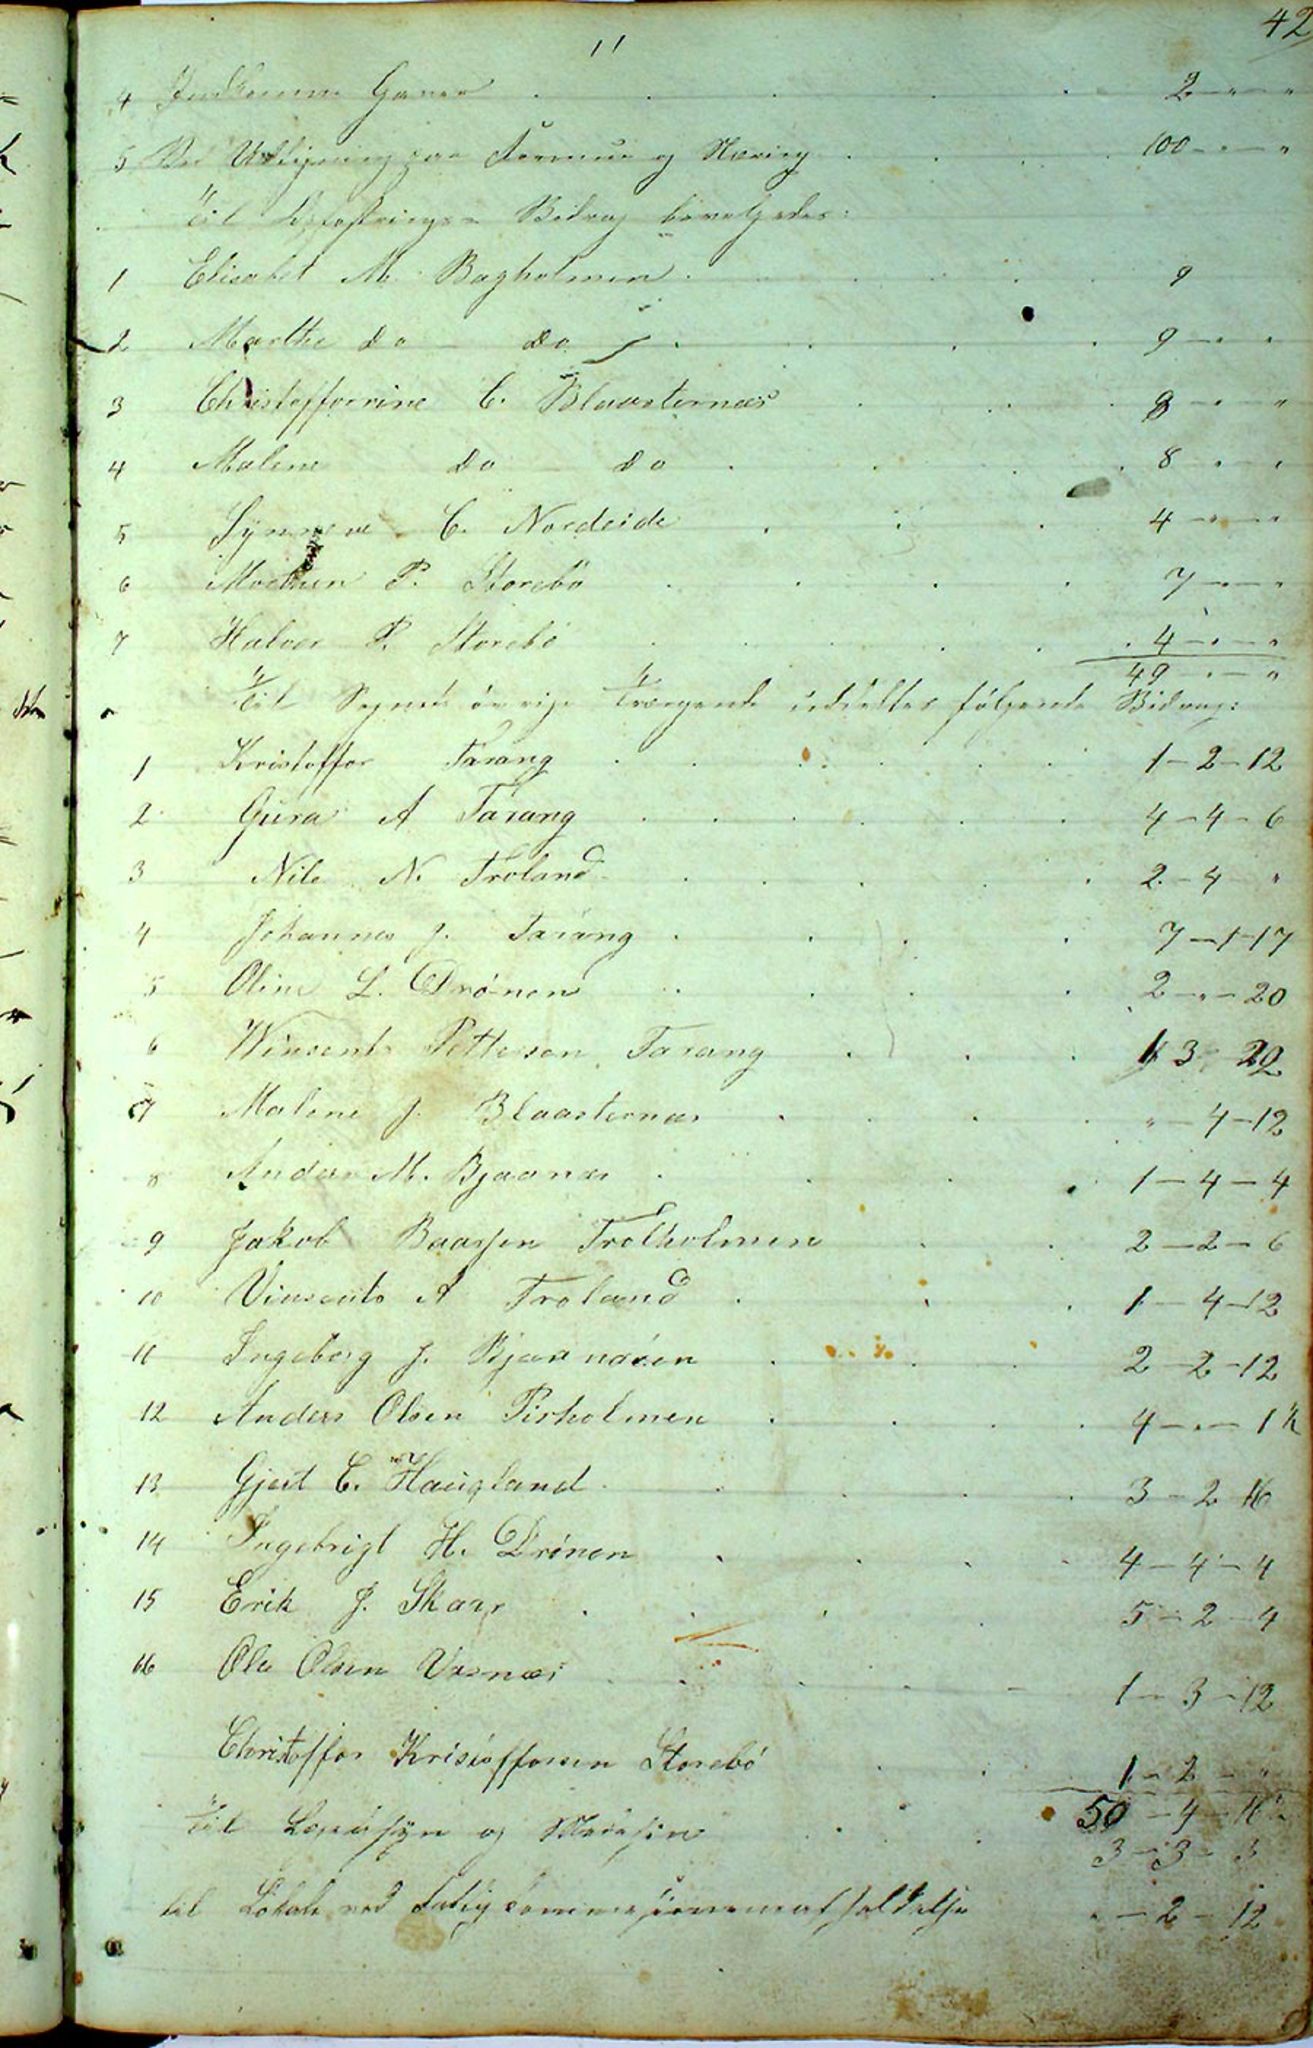 42
11
4 Indkomne Gaver . . . . . 2 - " - "
5 Ved Udligning paa Formue og Næring . . . 100 - " - "
Til Opfostrings-Bidrag bevilgedes:
1 Elisabet M. Bagholmen . . . . 9
2 Marthe do - do . . . . 9 - " - "
3 Christofferrine C. Blaasternæs . . . 8 - " - "
4 Malene do do . . . . 8 - " - "
5 Synneve C. Nordeide . . . 4 - " - "
6 P. Storebö . . . . 7 - " - "
7 Halvor P. Storebö . . . . 4 - " - "
49 - " - "
Til Sognets övrige Trængende uddeltes fölgende Bidrag:
1 Kristoffer Tarang . . . . 1 - 2 - 12
2 Gura A Tarang . . . . 4 - 4 - 6
3 Nils N. Troland . . . . 2 - 4 "
4 Johannes J. Tarang . . . . 7 - 1 - 17
5 Oline L. Drönen . . . . 2 - " - 20
6 Winsents Pettersen Tarang . . . 1 3 22
7 Malene J. Blaasternæs . . . . " - 4 - 12
8 Anders M. Bjaanæs . . . . 1 - 4 - 4
9 Jakob Baarsen Trolholmen . . 2 - 2 - 6
10 Vinsents A Troland . . . 1 - 4 - 12
11 Ingeborg J. Bjaanæsen . . . 2 - 2 - 12
12 Anders Olsen Pirholmen . . . . 4 - " - 1½
13 Gjert C. Haugland . . . . 3 - 2 16
14 Ingebrigt H. Drönen . . . . 4 - 4 - 4
15 Erik J. Skaar . . . . 5 - 2 - 4
16 Ole Olsen Vasnæs . . . . 1 - 3 - 12
Christoffer Kristoffersen Storebö . . 1 - 2 - "
50 - 4 -
Til Lægetilsyn og Medesin . . . 3 - 3 - 3
til Lokale ved Fatigkommissionenes afholdelse " - 2 - 12